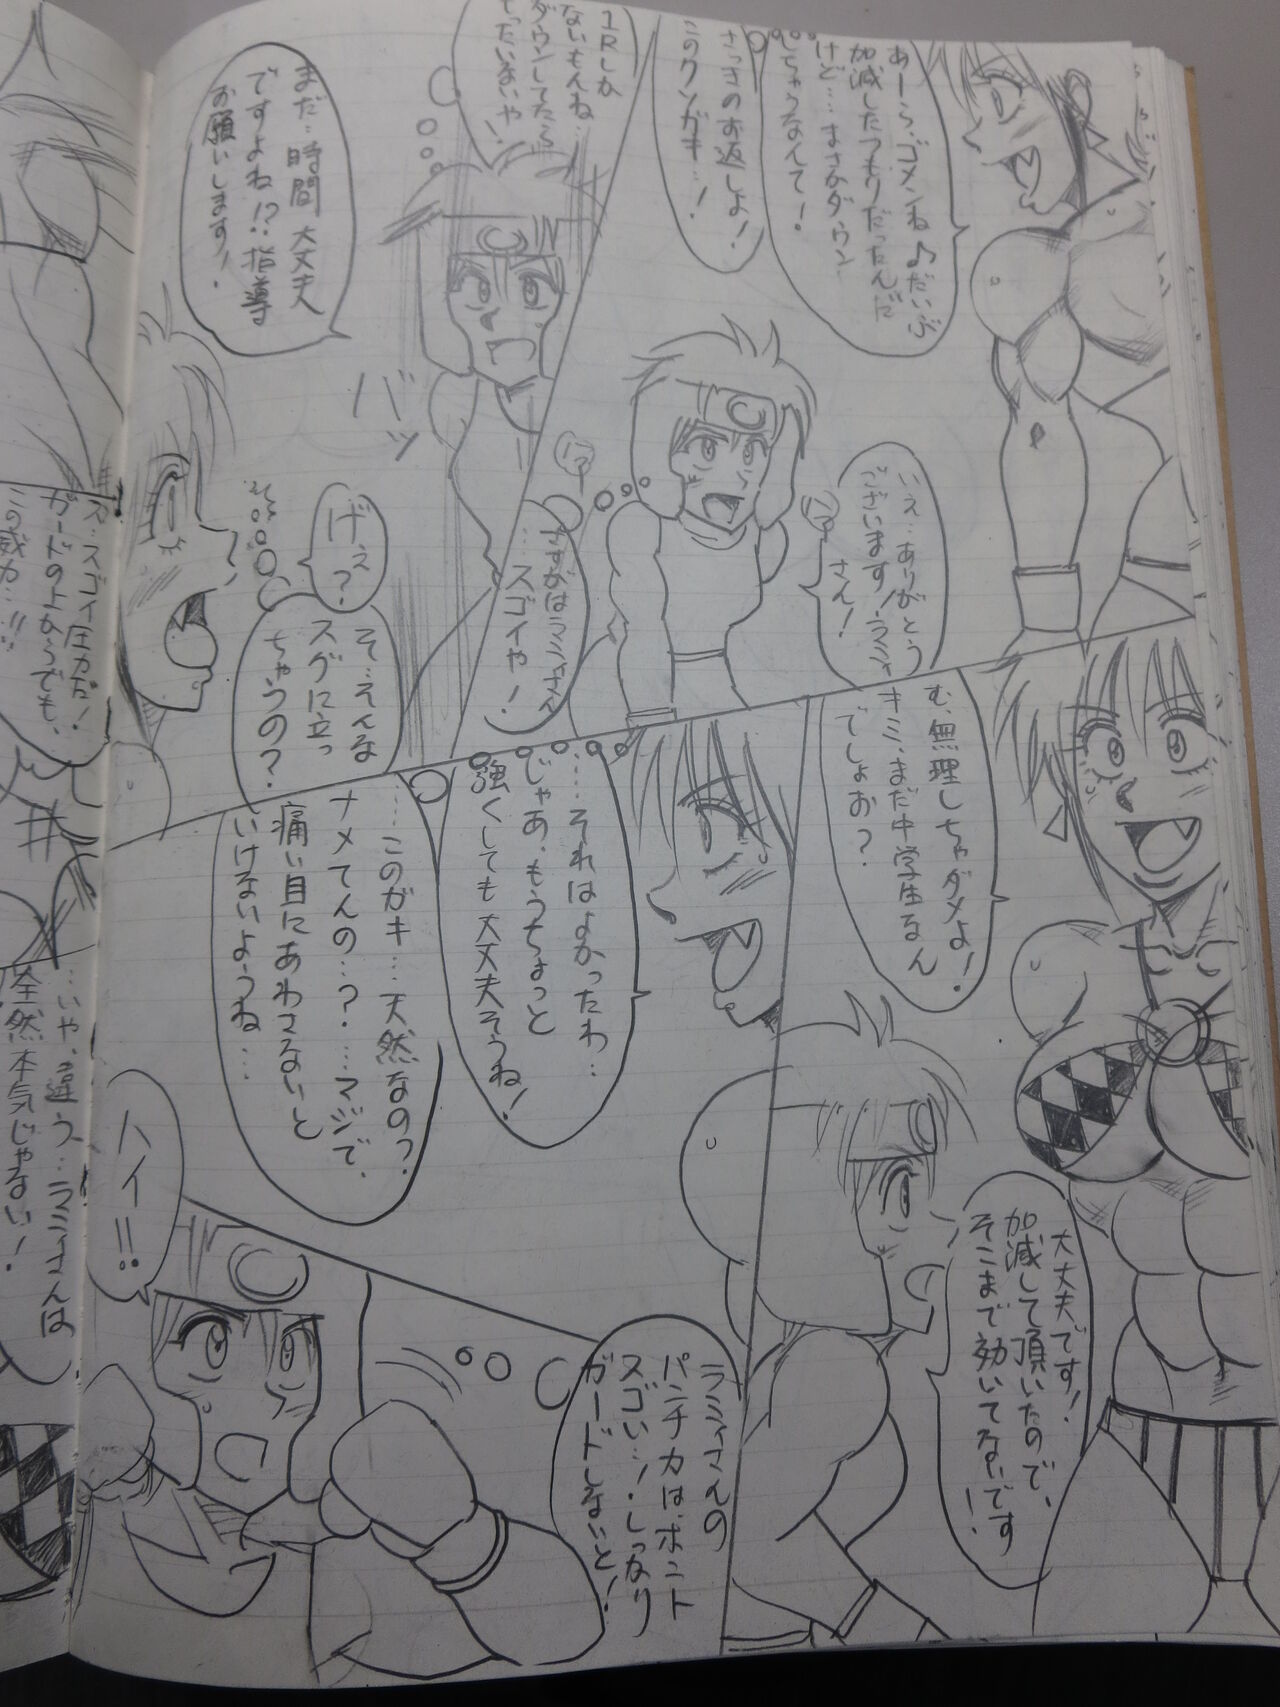 あーら、ゴメンね♪だいぶ
加減したつもりだったんだ
けど…まさかダウン
しちゃうなんて!
さっきのお返しよ!
このクソガキ…!
いえ…ありがとう
ございます!ラミャ
さん!
さすがはラミャさん
…スゴイや!
1Rしか
ないもんね…
ダウンしてたら
もったいないや!
まだ…時間大丈夫
ですよね!?指導
お願いします!
バッ
げえ?
そ…そんな
スグに立っ
ちゃうの?
む、無理しちゃダメよ!
キミ、まだ中学生なん
でしょお?
大丈夫です!
加減して頂いたので、
そこまで効いてないです
!
…それはよかったわ…
じゃあ、もうちょっと
強くしても大丈夫そうね!
…このガキ…天然なの?
ナメてんの…?…マジで、
痛い目にあわさないと
いけないようね…
ラミャさんの
パンチ力はホント
スゴい…!しっかり
ガードしないと!
ハイ!!
ス…スゴイ圧力だ!
ガードの上からでも、
この威力…!!
…いや、違う…ラミャさんは
全然本気じゃない!